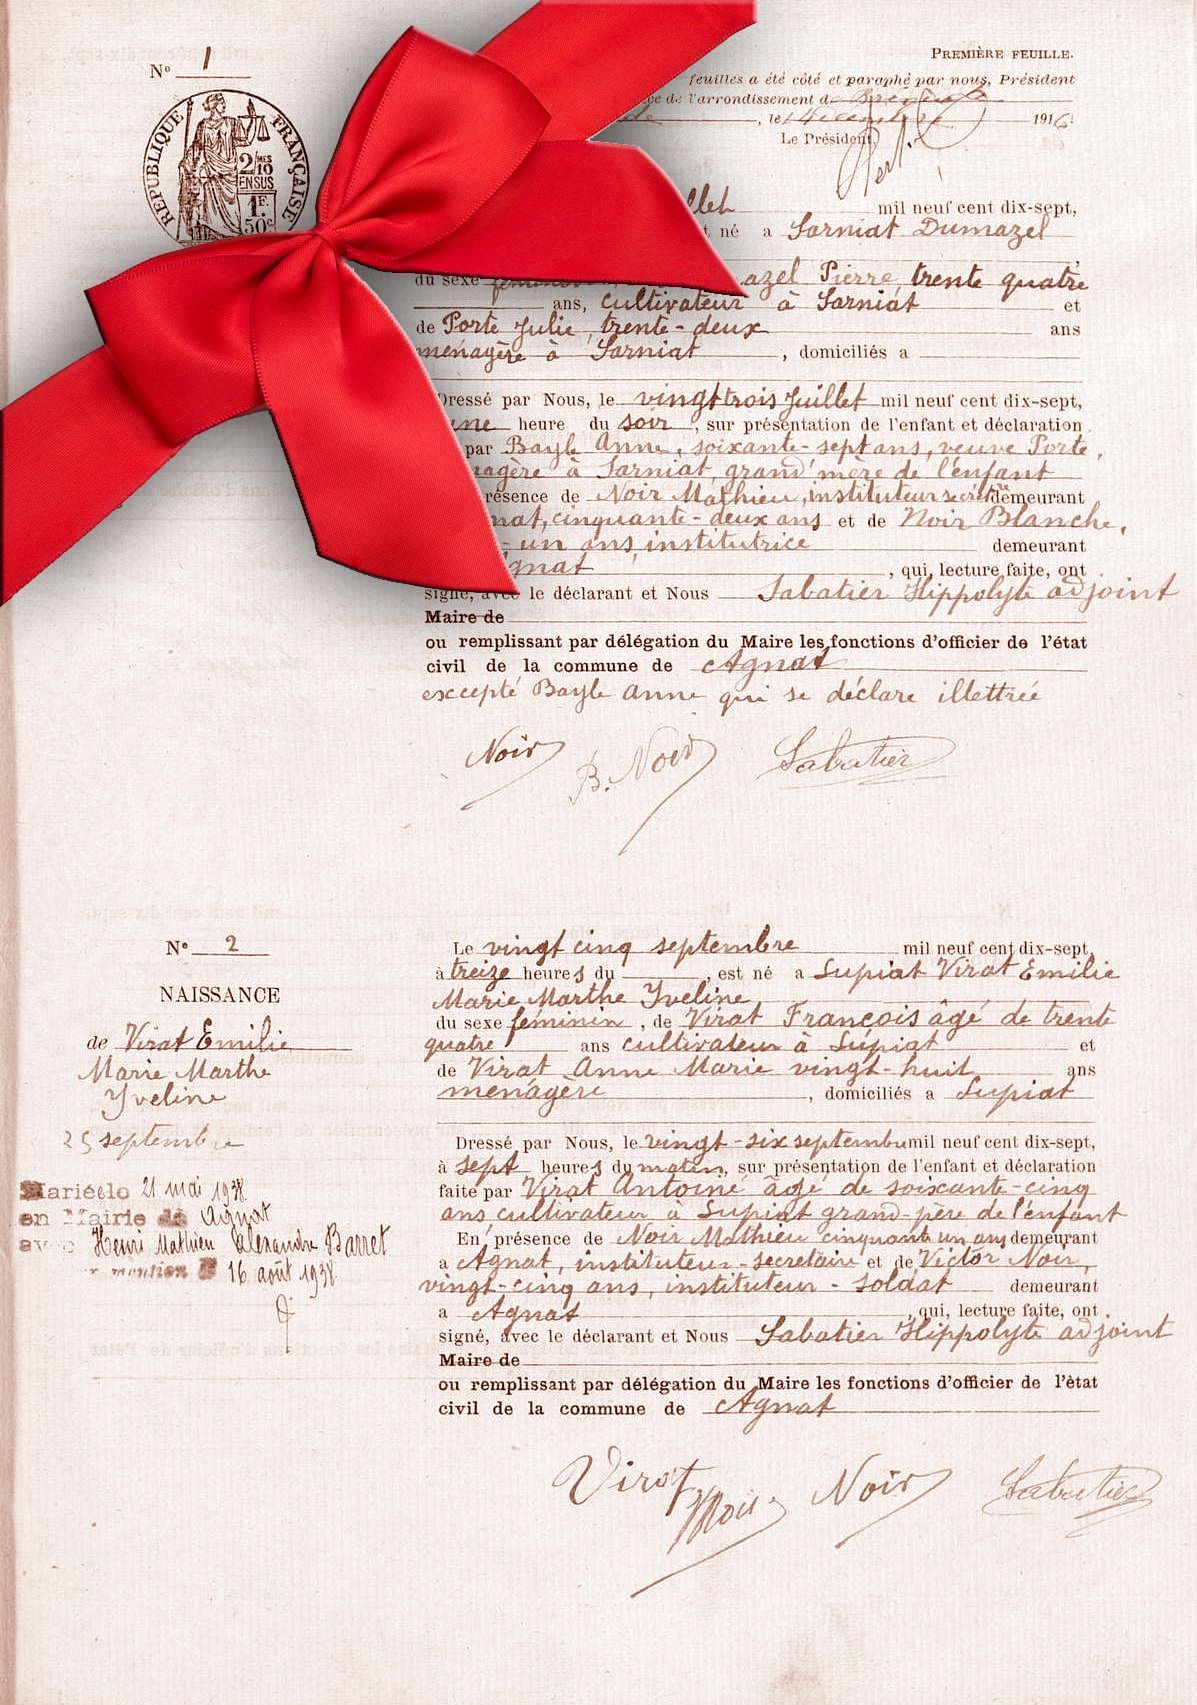 N° 1
PREMIÈRE FEUILLE.
feuilles a été côté et paraphé par nous, Président
de l'arrondissement d
, le 1916
Le Président,
RÉPUBLIQUE FRANÇAISE
2/10 MES
EN SUS
1F.
50c
llet mil neuf cent dix-sept,
t né a Sarniat Dumazel
du sexe féminin, azel Pierre, trente quatre
ans, cultivateur à Sarniat et
de Porte Julie, trente-deux ans
ménagère à Sarniat, domiciliés a
Dressé par Nous, le vingt trois Juillet mil neuf cent dix-sept,
une heure du soir, sur présentation de l'enfant et déclaration
par Bayle Anne, soixante-sept ans, veuve Porte,
agère à Sarniat, grand'mère de l'enfant
résence de Noir Mathieu, instituteur secrétre demeurant
nat, cinquante-deux ans et de Noir Blanche,
-un ans, institutrice demeurant
gnat, qui, lecture faite, ont
signé, avec le déclarant et Nous Sabatier Hippolyte adjoint
Maire de
ou remplissant par délégation du Maire les fonctions d'officier de l'état
civil de la commune de Agnat
excepté Bayle Anne qui se déclare illettrée
Noir B. Noir Sabatier
N° 2
NAISSANCE
de Virat Emilie
Marie Marthe
Yveline
25 septembre
Marié le 21 mai 1938
en Mairie de Agnat
avec Henri Mathieu Alexandre Barret
mention 16 août 1938
Le vingt cinq septembre mil neuf cent dix-sept,
à treize heures du, est né a Lupiat Virat Emilie
Marie Marthe Yveline
du sexe féminin, de Virat François âgé de trente
quatre ans cultivateur à Lupiat et
de Virat Anne Marie vingt-huit ans
ménagère, domiciliés a Lupiat
Dressé par Nous, le vingt-six septembre mil neuf cent dix-sept,
à sept heures du matin, sur présentation de l'enfant et déclaration
faite par Virat Antoine âgé de soixante-cinq
ans cultivateur à Lupiat grand-père de l'enfant
En présence de Noir Mathieu cinquante un ans demeurant
a Agnat, instituteur-secrétaire et de Victor Noir,
vingt-cinq ans, instituteur-soldat demeurant
a Agnat, qui, lecture faite, ont
signé, avec le déclarant et Nous Sabatier Hippolyte adjoint
Maire de
ou remplissant par délégation du Maire les fonctions d'officier de l'état
civil de la commune de Agnat
Virat Noir Noir Sabatier